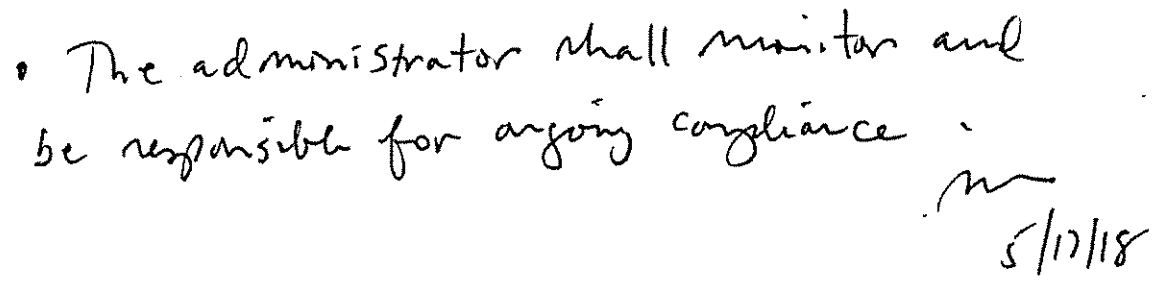 • The administrator shall monitor and
be responsible for ongoing compliance.
5/17/18